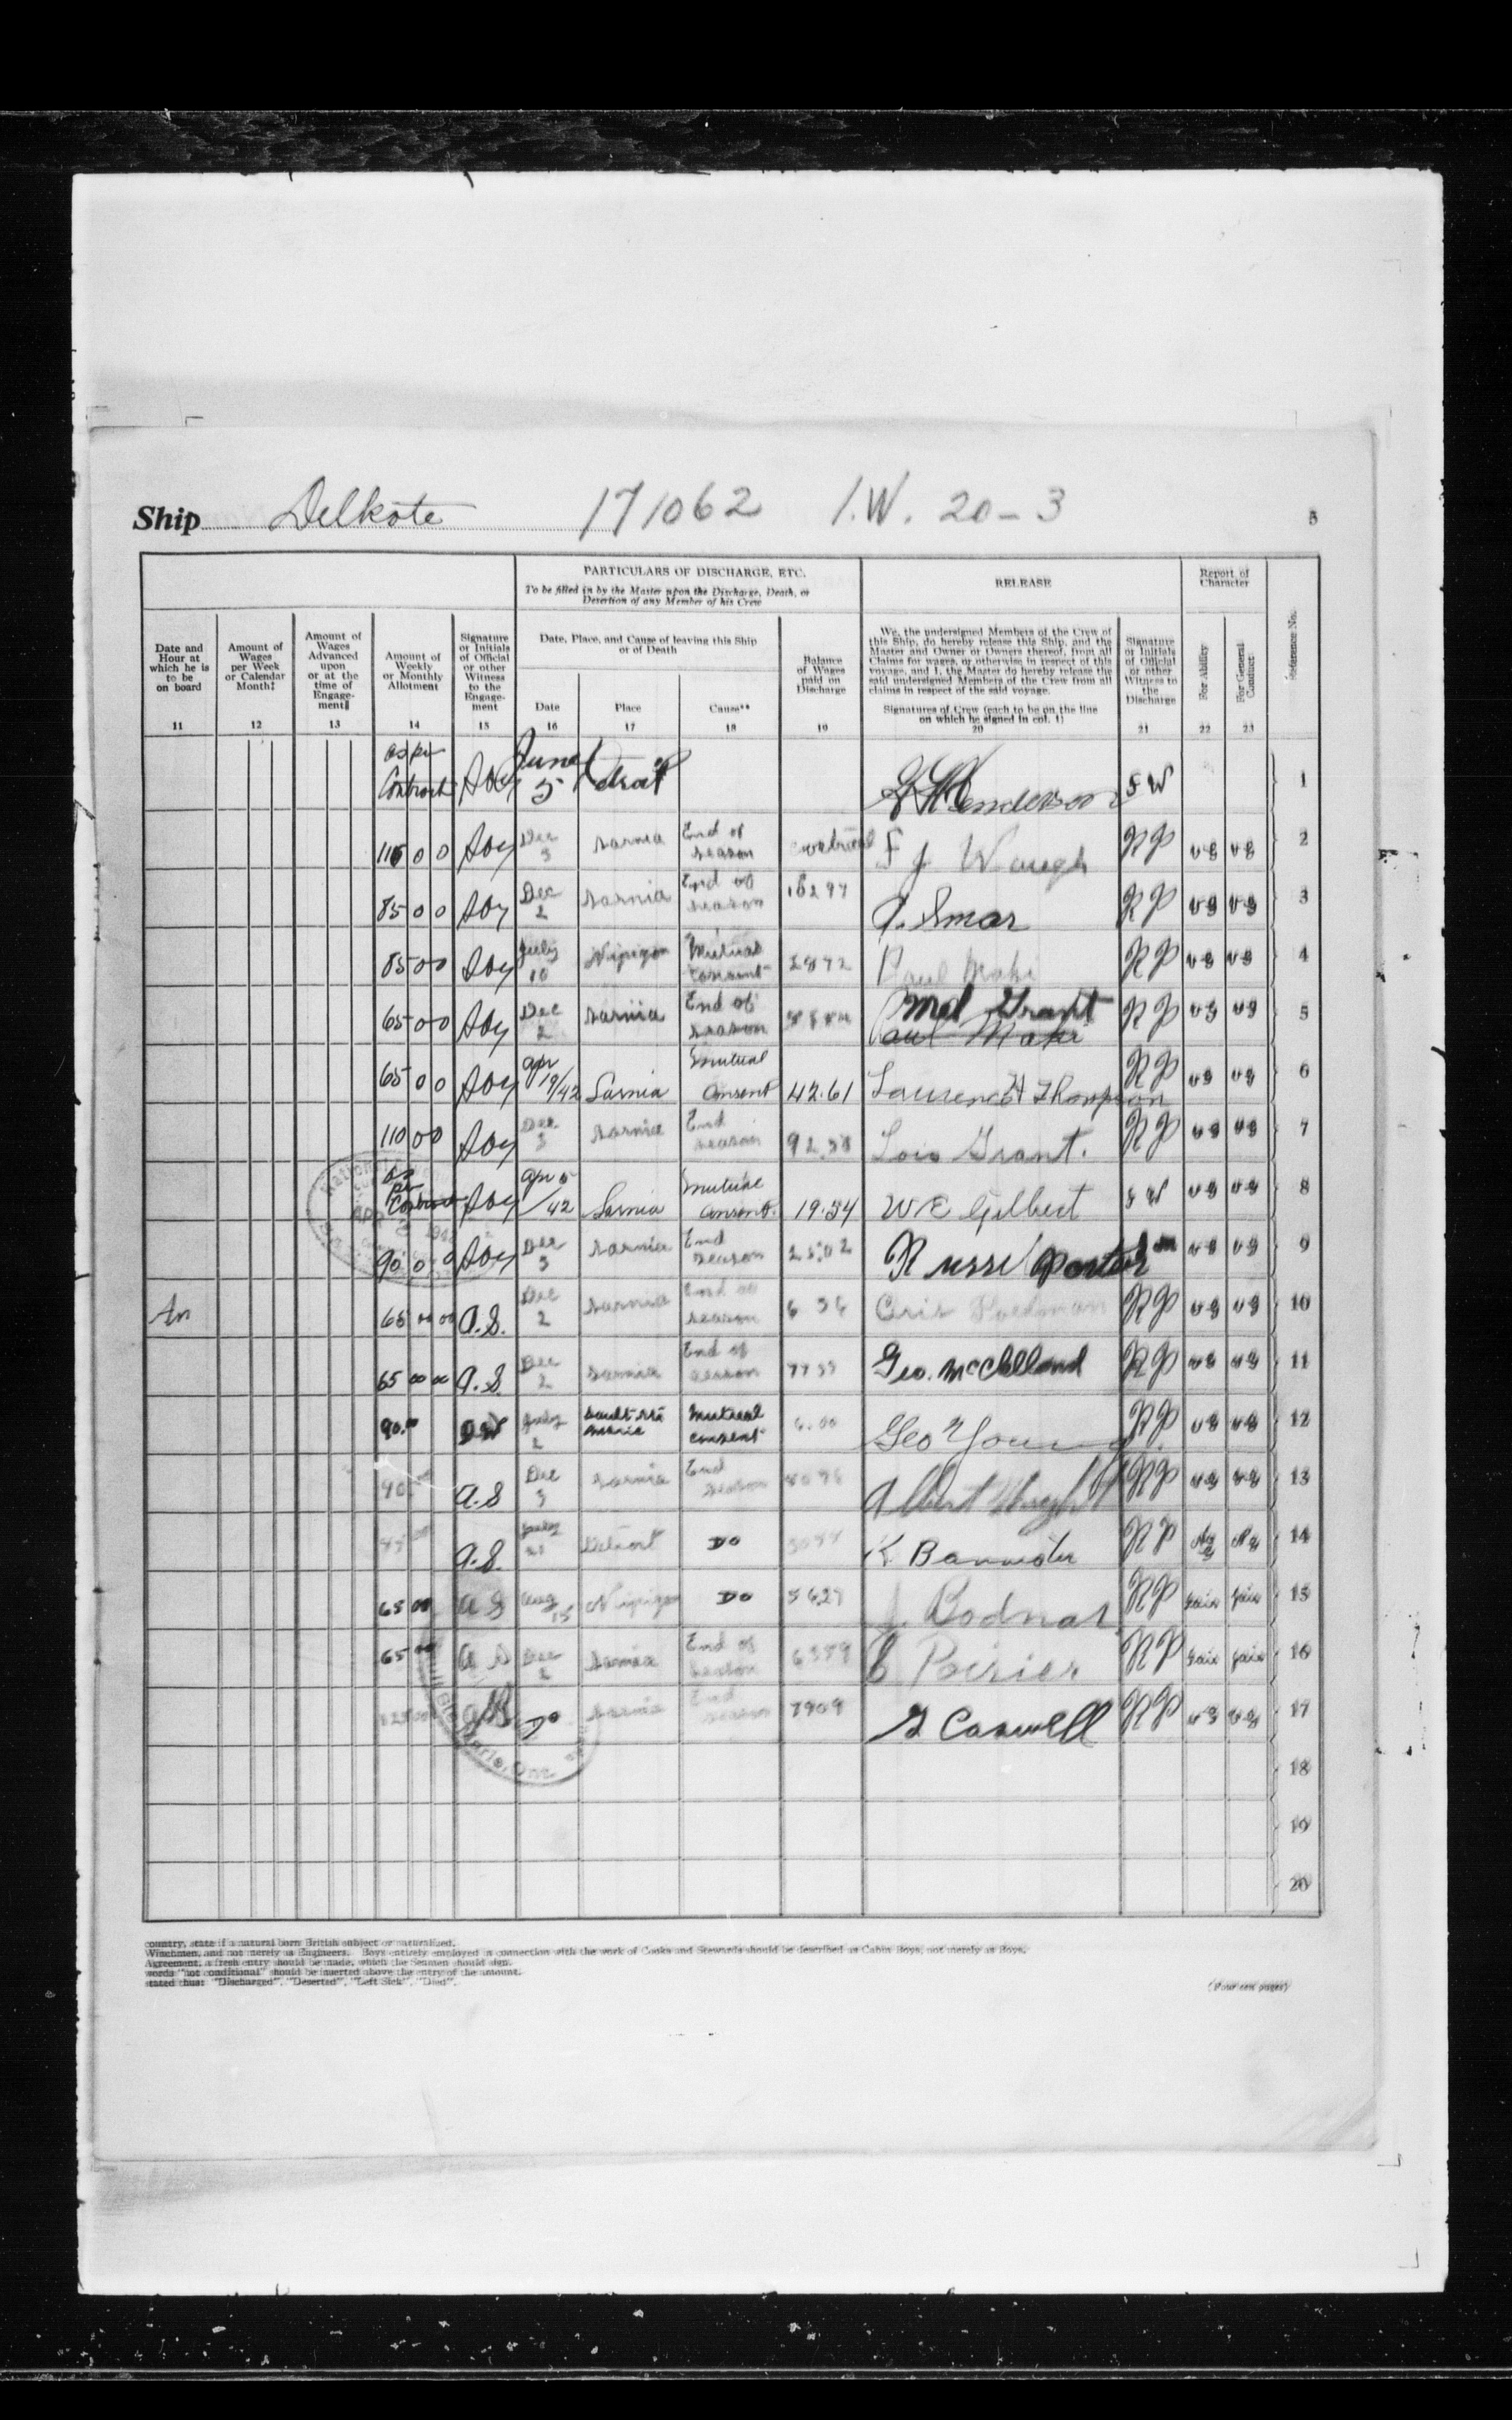 Ship Delkote 171062 I.W. 20-3 5
PARTICULARS OF DISCHARGE, ETC.
To be filled in by the Master upon the Discharge, Death, or
Desertion of any Member of his Crew
RELEASE
Report of
Character
Reference No.
Date and
Hour at
which he is
to be
on board
11
Amount of
Wages
per Week
or Calendar
Month‡
12
Amount of
Wages
Advanced
upon
or at the
time of
Engage-
ment‖
13
Amount of
Weekly
or Monthly
Allotment
14
Signature
or Initials
of Official
or other
Witness
to the
Engage-
ment
15
Date, Place, and Cause of leaving this Ship
or of Death
Date
16
Place
17
Cause**
18
Balance
of Wages
paid on
Discharge
19
We, the undersigned Members of the Crew of
this Ship, do hereby release this Ship, and the
Master and Owner or Owners thereof, from all
Claims for wages, or otherwise in respect of this
voyage, and I, the Master do hereby release the
said undersigned Members of the Crew from all
claims in respect of the said voyage.
Signatures of Crew (each to be on the line
on which he signed in col. 1)
20
Signature
or Initials
of Official
or other
Witness to
the
Discharge
21
For Ability
22
For General
Conduct
23
as per Contract June 5 Detroit Henderson 1
115 00 Dec 3 Sarnia End of season F J Waugh RP vg vg 2
85 00 Dec 2 Sarnia End of season RP vg vg 3
85 00 July 10 Nipigon Mutual consent Paul Maki RP vg vg 4
65 00 Dec 2 Sarnia End of season Grant Paul Maki RP vg vg 5
65 00 Apr 19/42 Sarnia mutual consent 42.61 Laurence H Thompson RP vg vg 6
110 00 Dec 3 Sarnia End season Lois Grant. RP vg vg 7
as per Contract Apr 5/42 Sarnia mutual consent. W E Gilbert vg vg 8
90 00 Dec 3 Sarnia End season Porter vg vg 9
65 00 00 A.S. Dec 2 Sarnia End of season RP vg vg 10
65 00 00 A.S. Dec 2 Sarnia End of season Geo. McClelland RP vg vg 11
90.00 July 2 Sault Ste Marie Mutual consent 6.00 Geo Young RP vg vg 12
90 A.S Dec 3 Sarnia End season Albert Wright RP vg vg 13
A.S. July Detroit Do K Bannister RP 14
65 00 A S Aug 15 Nipigon Do J. Bodnar RP Fair Fair 15
65 00 A S Dec 2 Sarnia End of season Poirier RP Fair Fair 16
Do Sarnia End season 7909 Caswell RP vg vg 17
18
19
20
country, state if a natural born British subject or naturalized.
Winchmen, and not merely as Engineers. Boys entirely employed in connection with the work of Cooks and Stewards should be described as Cabin Boys, not merely as Boys.
Agreement, a fresh entry should be made, which the Seamen should sign.
words "not conditional" should be inserted above the entry of the amount.
stated thus: "Discharged", "Deserted", "Left Sick", "Died".